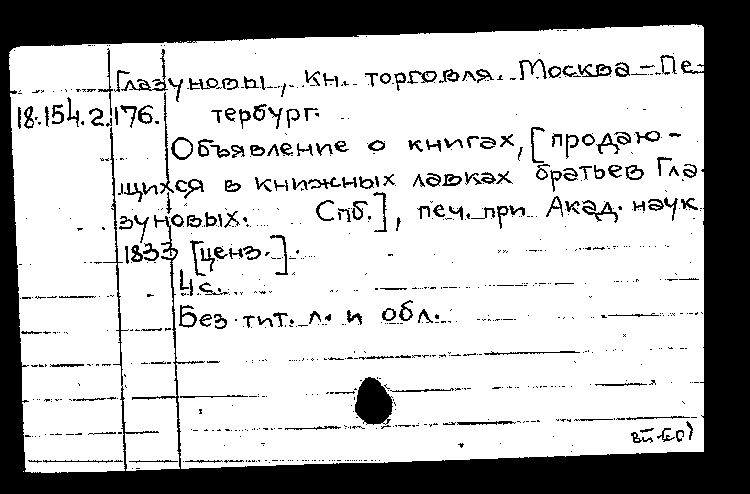 Глазуновы, кн. торговля. Москва – Пе-
18.154.2.176. тербург.
Объявление о книгах, [продаю-
щихся в книжных лавках братьев Гла-
зуновых. Спб.], печ. при Акад. наук
1833 [ценз.].
4с.
Без тит. л. и обл.